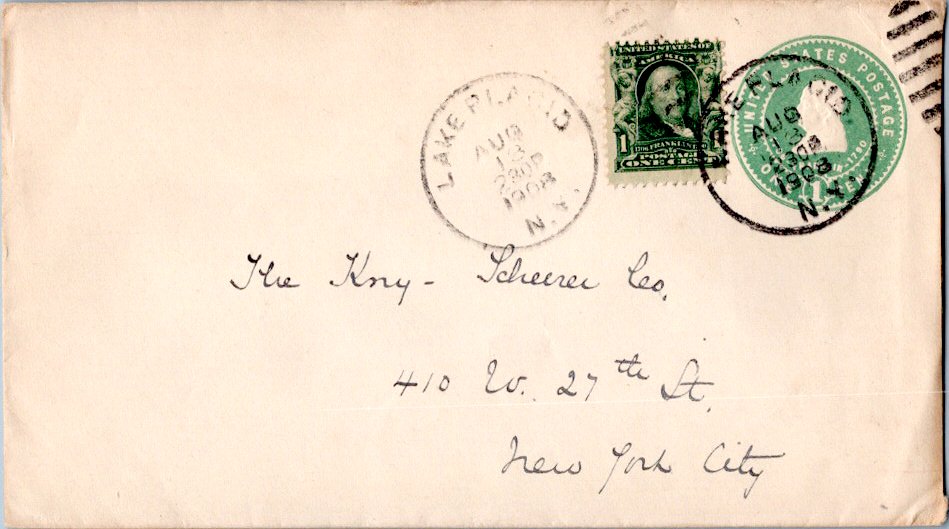 UNITED STATES OF
AMERICA
1
1706 FRANKLIN
POSTAGE
ONE CENT
UNITED STATES POSTAGE
1
LAKE PLACID
AUG
13
1908
N.Y.
LAKE PLACID
AUG
13
1908
N.Y.
The Kny-Scheerer Co.
410 W. 27th St.
New York City